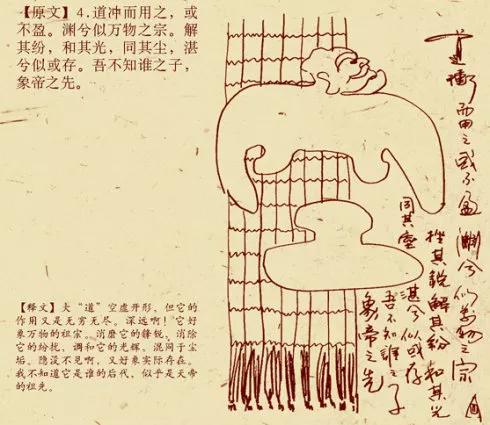 【原文】4.道冲而用之，或
不盈。渊兮似万物之宗。解
其纷，和其光，同其尘，湛
兮似或存。吾不知谁之子，
象帝之先。
【释文】大“道”空虚开形，但它的
作用又是无穷无尽。深远啊！它好
象万物的祖宗。消磨它的锋锐，消除
它的纷扰，调和它的光辉，混同于尘
垢。隐没不见啊，又好象实际存在。
我不知道它是谁的后代，似乎是天帝
的祖先。
道冲而用之或不盈渊兮似万物之宗
挫其锐解其纷和其光
同其尘
湛兮似或存
吾不知谁之子
象帝之先